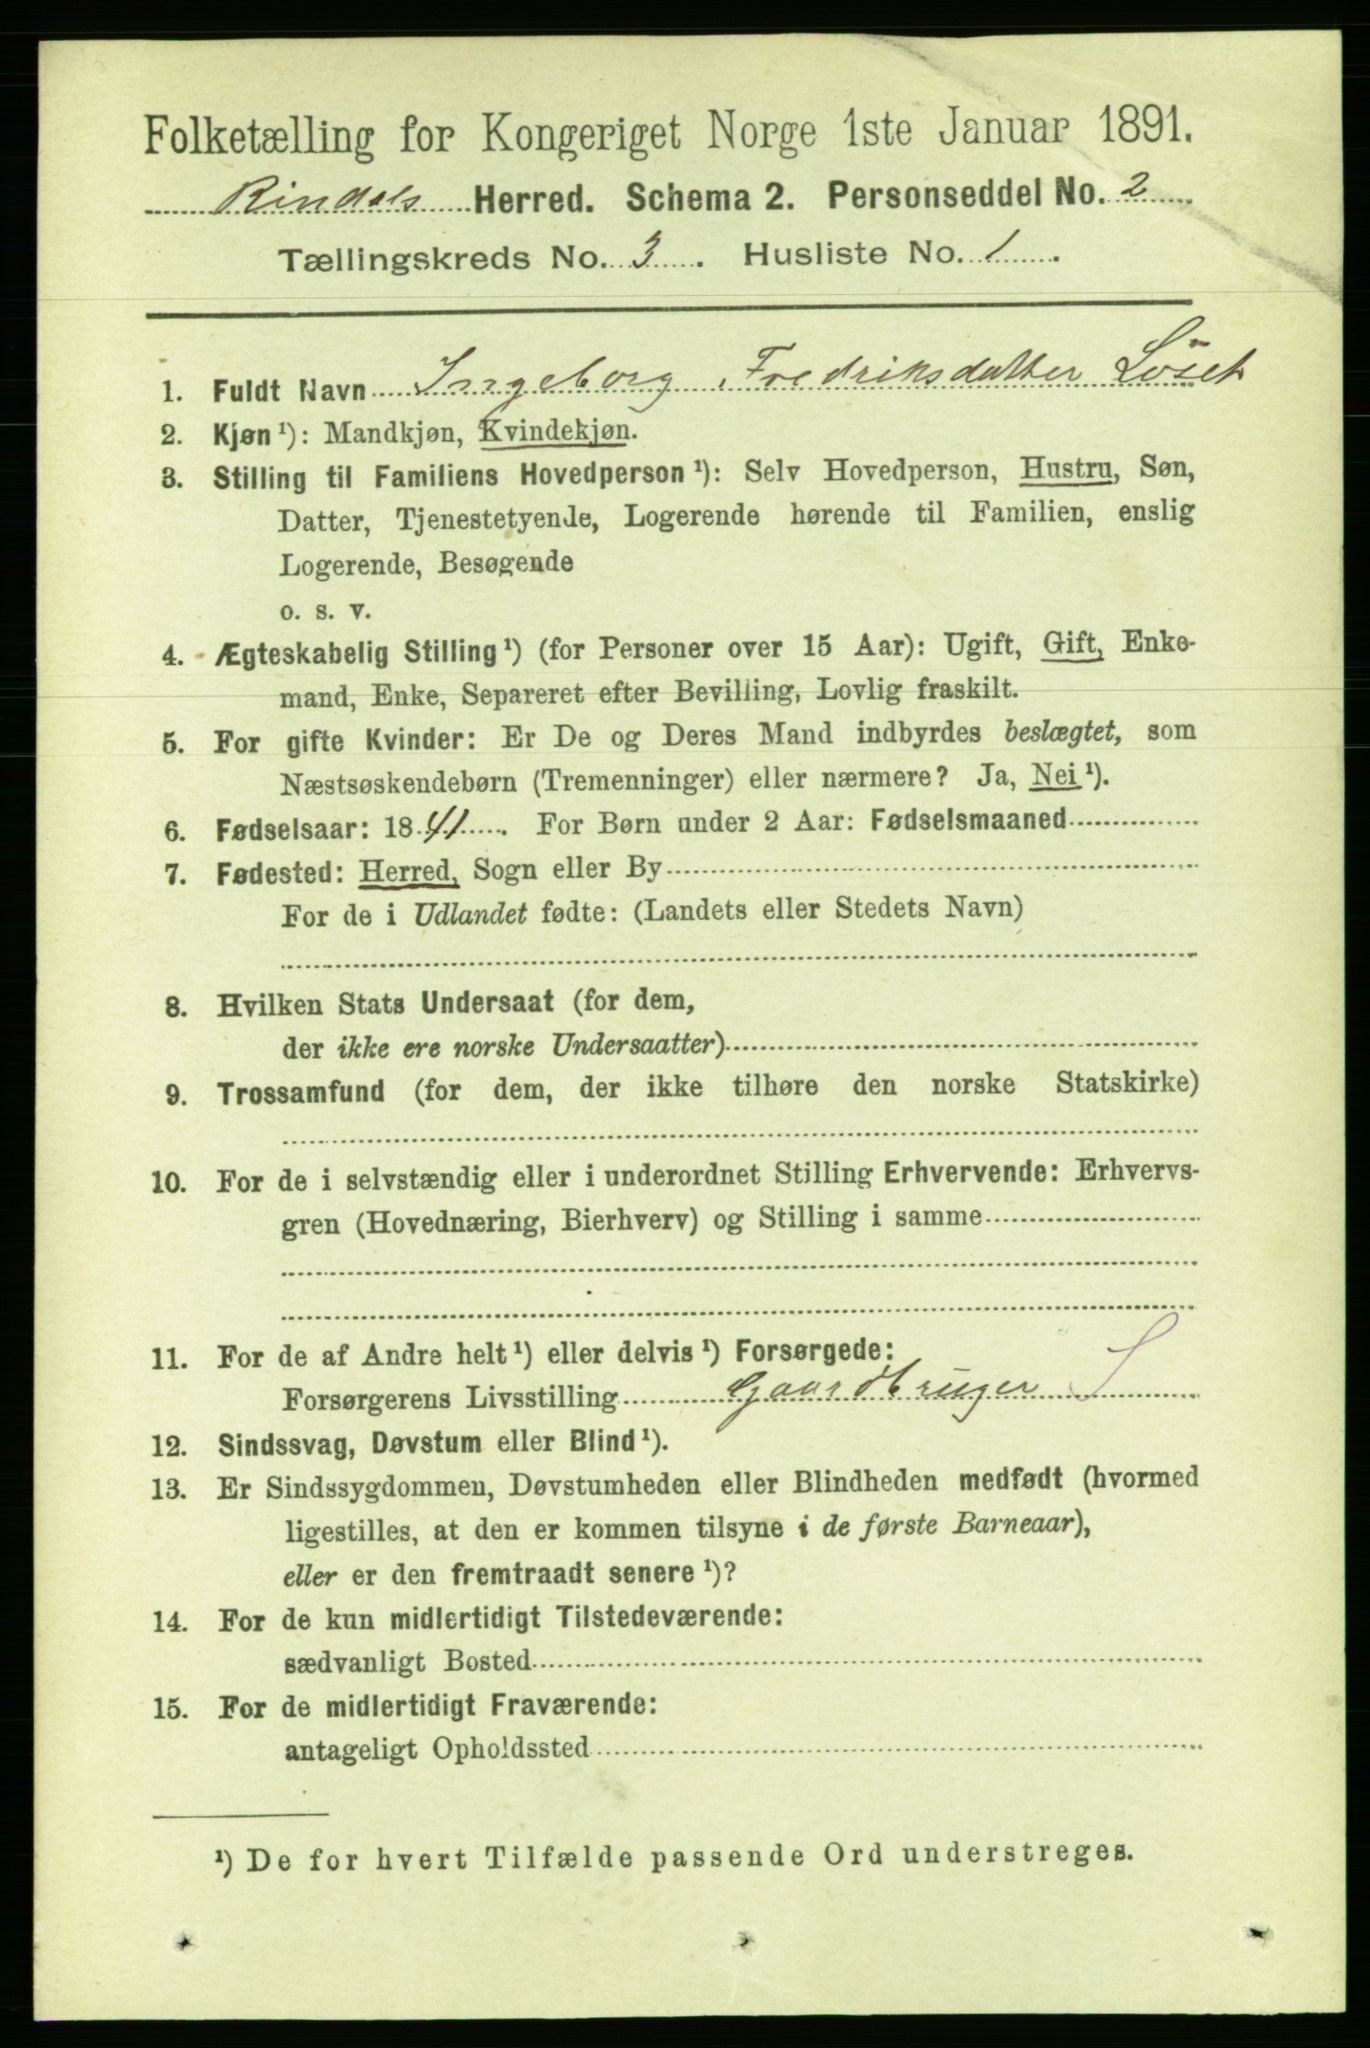 Folketælling for Kongeriget Norge 1ste Januar 1891.
Rindals Herred. Schema 2. Personseddel No. 2
Tællingskreds No. 3. Husliste No. 1.
1. Fuldt Navn Ingeborg Fredriksdatter Löset
2. Kjøn¹): Mandkjøn, Kvindekjøn.
3. Stilling til Familiens Hovedperson¹): Selv Hovedperson, Hustru, Søn,
Datter, Tjenestetyende, Logerende hørende til Familien, enslig
Logerende, Besøgende
o. s. v.
4. Ægteskabelig Stilling¹) (for Personer over 15 Aar): Ugift, Gift, Enke-
mand, Enke, Separeret efter Bevilling, Lovlig fraskilt.
5. For gifte Kvinder: Er De og Deres Mand indbyrdes beslægtet, som
Næstsøskendebørn (Tremenninger) eller nærmere? Ja, Nei¹).
6. Fødselsaar: 1841. For Børn under 2 Aar: Fødselsmaaned
7. Fødested: Herred, Sogn eller By
For de i Udlandet fødte: (Landets eller Stedets Navn)
8. Hvilken Stats Undersaat (for dem,
der ikke ere norske Undersaatter)
9. Trossamfund (for dem, der ikke tilhøre den norske Statskirke)
10. For de i selvstændig eller i underordnet Stilling Erhvervende: Erhvervs-
gren (Hovednæring, Bierhverv) og Stilling i samme
11. For de af Andre helt¹) eller delvis¹) Forsørgede:
Forsørgerens Livsstilling Gaardbruger S
12. Sindssvag, Døvstum eller Blind¹).
13. Er Sindssygdommen, Døvstumheden eller Blindheden medfødt (hvormed
ligestilles, at den er kommen tilsyne i de første Barneaar),
eller er den fremtraadt senere¹)?
14. For de kun midlertidigt Tilstedeværende:
sædvanligt Bosted
15. For de midlertidigt Fraværende:
antageligt Opholdssted
¹) De for hvert Tilfælde passende Ord understreges.